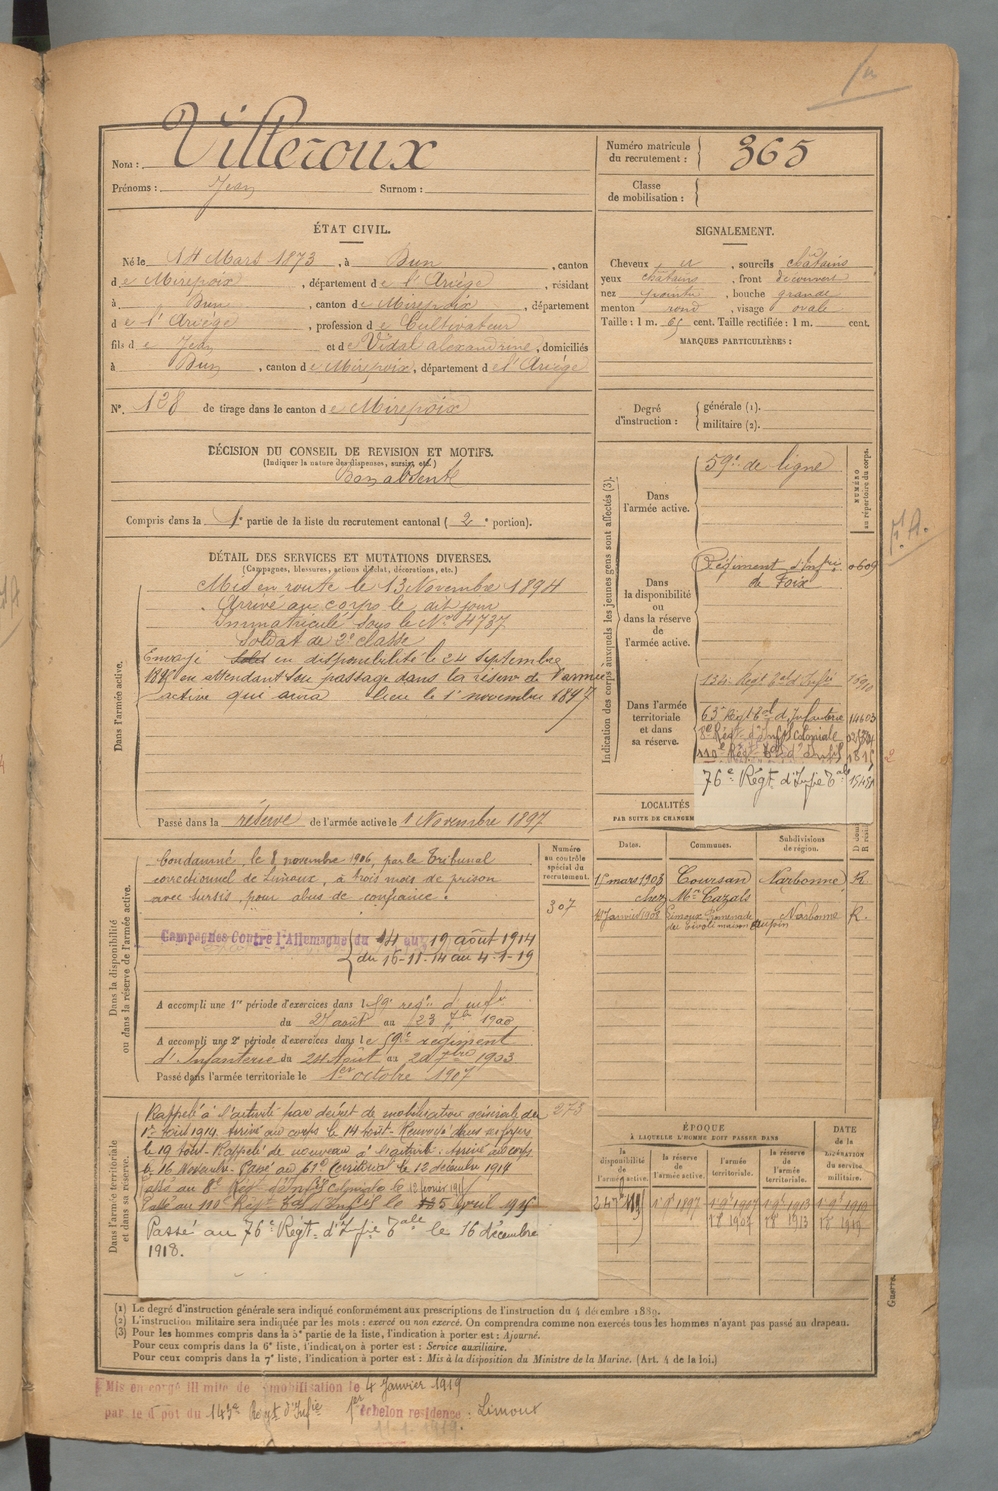 Nom : Villeroux
Prénoms : Jean Surnom :
Numéro matricule du recrutement : 365
Classe de mobilisation :
ÉTAT CIVIL.
Né le 14 Mars 1873, à Bun, canton
de Mirepoix, département de l'Ariège, résidant
à Bun, canton de Mirepoix, département
de l'Ariège, profession de Cultivateur
fils de Jean et de Vidal Alexandrine, domiciliés
à Bun, canton de Mirepoix, département de l'Ariège
N°. 128 de tirage dans le canton de Mirepoix
SIGNALEMENT.
Cheveux , sourcils châtains
yeux châtains, front découvert
nez pointu, bouche grande
menton rond, visage ovale
Taille : 1 m. 65 cent. Taille rectifiée : 1 m. cent.
MARQUES PARTICULIÈRES :
DÉCISION DU CONSEIL DE REVISION ET MOTIFS.
(Indiquer la nature des dispenses, sursis, etc.)
Bon absent
Compris dans la 1e partie de la liste du recrutement cantonal ( 2e portion).
Degré d'instruction : générale (1).
militaire (2).
DÉTAIL DES SERVICES ET MUTATIONS DIVERSES.
(Campagnes, blessures, actions d'éclat, décorations, etc.)
Dans l'armée active.
Mis en route le 13 Novembre 1894
Arrivé au corps le dit jour
Immatriculé sous le N° 4737
Soldat de 2e classe
Envoyé en disponibilité le 24 septembre
en attendant son passage dans la réserve de l'armée
active qui aura lieu le 1er novembre 1897
Passé dans la réserve de l'armée active le 1 Novembre 1897
Indication des corps auxquels les jeunes gens sont affectés (3).
NUMÉRO au répertoire du corps.
Dans l'armée active. 59e de ligne
Dans la disponibilité ou dans la réserve de l'armée active.
Régiment d'Infrie 0609
de Foix
Dans l'armée territoriale et dans sa réserve.
134e Régt Ter. d'Infie
63e Régt Tal d'Infanterie 14603
8e Régt d'Infie Coloniale
110e Régt Tal d'Infie 1815
76e Régt d'Infie Tale 15451
F. A.
Dans la disponibilité ou dans la réserve de l'armée active.
Condamné, le 8 novembre 1906, par le Tribunal
correctionnel de Limoux, à trois mois de prison
avec sursis, pour abus de confiance.
Campagnes Contre l'Allemagne du 14 au 19 août 1914
du 16-11-14 au 4-1-19
Numéro au contrôle spécial du recrutement.
307
A accompli une 1re période d'exercices dans le 59e régt d'infie
du 27 août au 23 7bre 1900
A accompli une 2e période d'exercices dans le 59e régiment
d'Infanterie du 24 Août au 20 7bre 1903
Passé dans l'armée territoriale le 1er octobre 1907
LOCALITÉS
PAR SUITE DE CHANGEM
Dates. Communes. Subdivisions de région.
1er mars 1903 Coursan Narbonne R
chez Mr Cazals
17 janvier 1908 Limoux Promenade Narbonne R.
du Tivoli maison
Dans l'armée territoriale et dans sa réserve.
Rappelé à l'activité par décret de mobilisation générale du 273
1er Août 1914. Arrivé au corps le 14 Août. Renvoyé dans ses foyers
le 19 Août. Rappelé de nouveau à l'activité. Arrivé au corps
le 16 Novembre. Passé au territorial le 12 décembre 1914
Passé au 8e Régt d'Infie Coloniale le 12 février 1915
Passé au 110e Régt Tal d'Infie le 5 avril 1915
Passé au 76e Régt d'Infie Tale le 16 décembre
1918.
ÉPOQUE
À LAQUELLE L'HOMME DOIT PASSER DANS
la disponibilité de l'armée active.
la réserve de l'armée active.
l'armée territoriale.
la réserve de l'armée territoriale.
DATE de la LIBÉRATION du service militaire.
1 9e 1897
1907 1913 1919
(1) Le degré d'instruction générale sera indiqué conformément aux prescriptions de l'instruction du 4 décembre 1889.
(2) L'instruction militaire sera indiquée par les mots : exercé ou non exercé. On comprendra comme non exercés tous les hommes n'ayant pas passé au drapeau.
(3) Pour les hommes compris dans la 5e partie de la liste, l'indication à porter est : Ajourné.
Pour ceux compris dans la 6e liste, l'indication à porter est : Service auxiliaire.
Pour ceux compris dans la 7e liste, l'indication à porter est : Mis à la disposition du Ministre de la Marine. (Art. 4 de la loi.)
Guerre.
Mis en congé illimité de démobilisation le 4 Janvier 1919
par le dépôt du 143e Régt d'Infie 1er échelon residence : Limoux